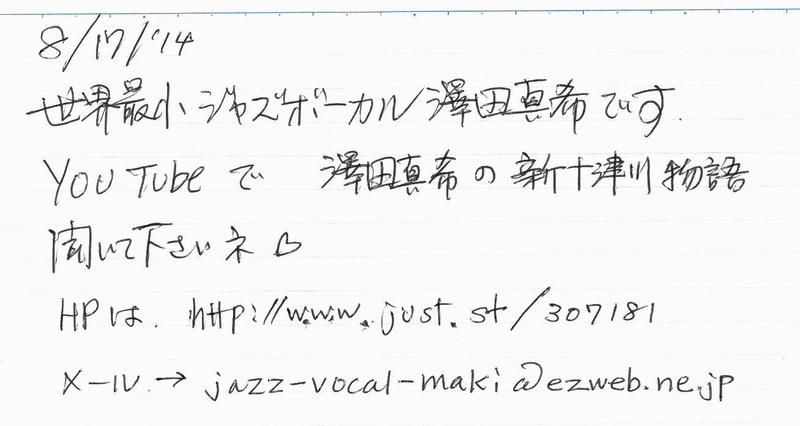 8/17/'14
世界最小ジャズボーカル澤田真希です.
YOU Tube で 澤田真希の新十津川物語
聞いて下さいネ♡
HPは. http://www.just.st/307181
メール.→ jazz-vocal-maki@ezweb.ne.jp